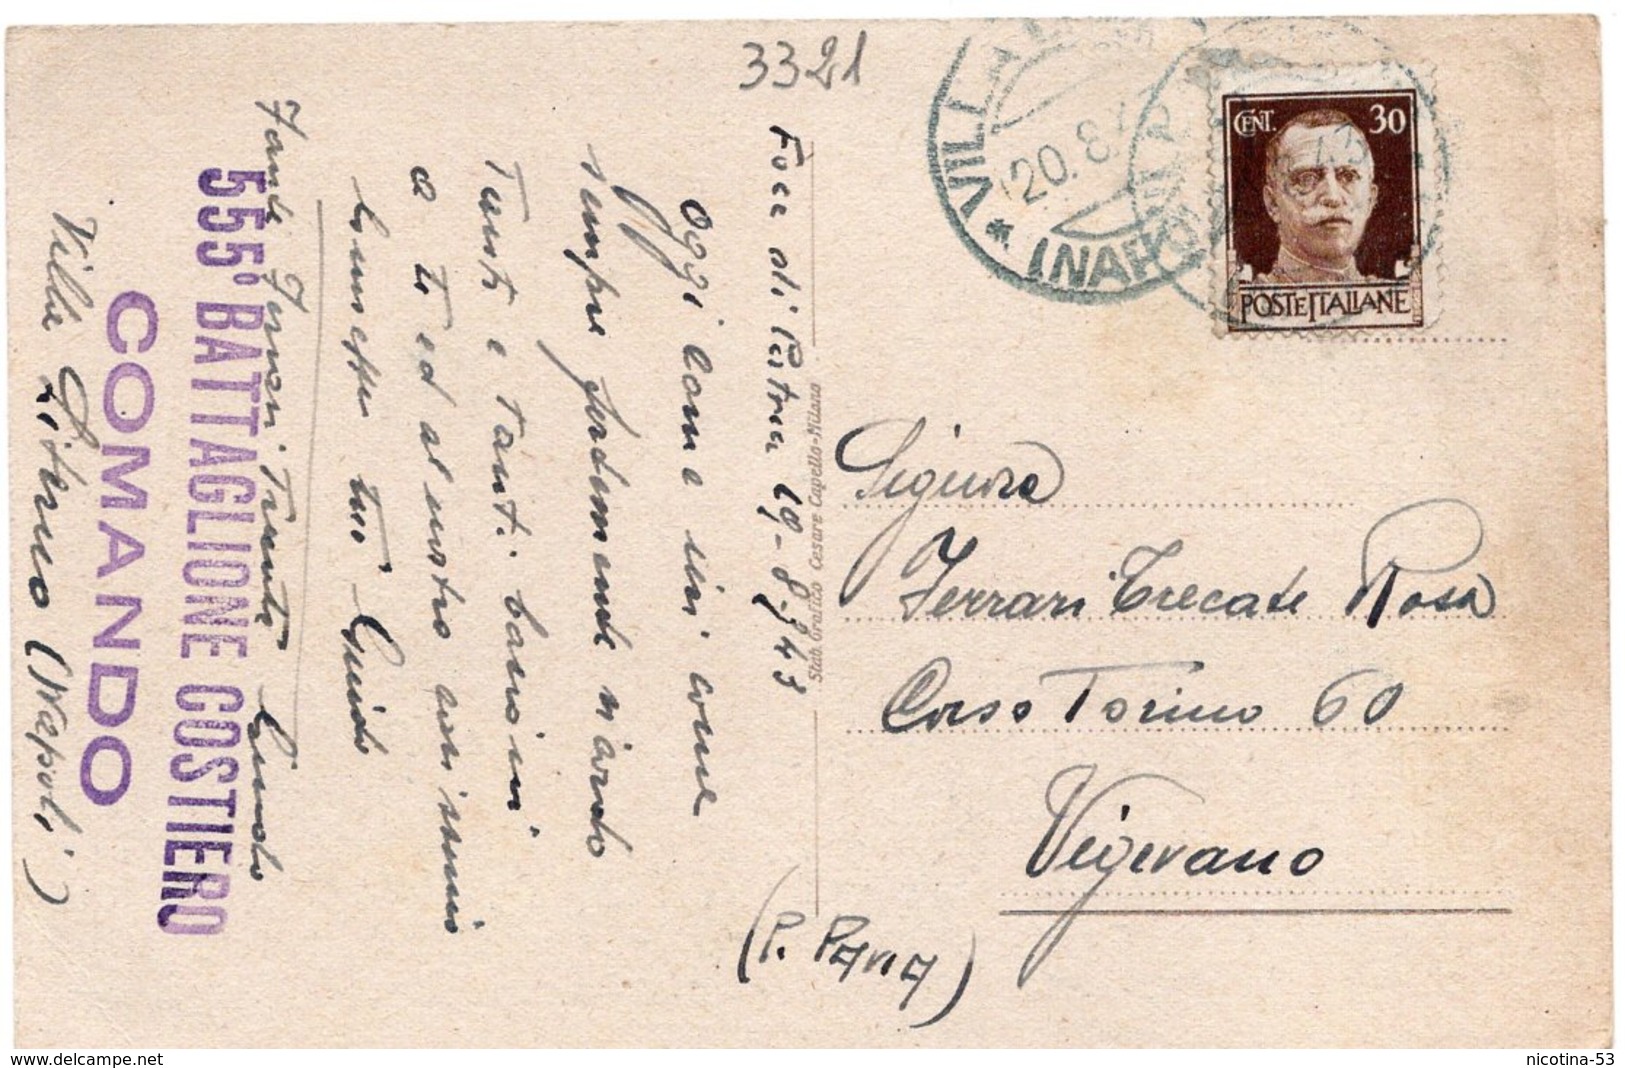 3321
VILLA LITERNO
20.8.43
(NAPOLI)
CENT. 30
POSTE ITALIANE
Foce di Patria 19-8-943
Oggi come ieri come
sempre fedemente ricordo
Tanti e Tanti bacioni
a te ed al nostro carissimo
tuo Guido
Fante Ferrari Guido
555° BATTAGLIONE COSTIERO
COMANDO
Villa Literno (Napoli)
Stab. Grafico Cesare Capello-Milano
Signora
Ferrari Trecate Rosa
Corso Torino 60
Vigevano
(P. PAVIA)
www.delcampe.net
nicotina-53